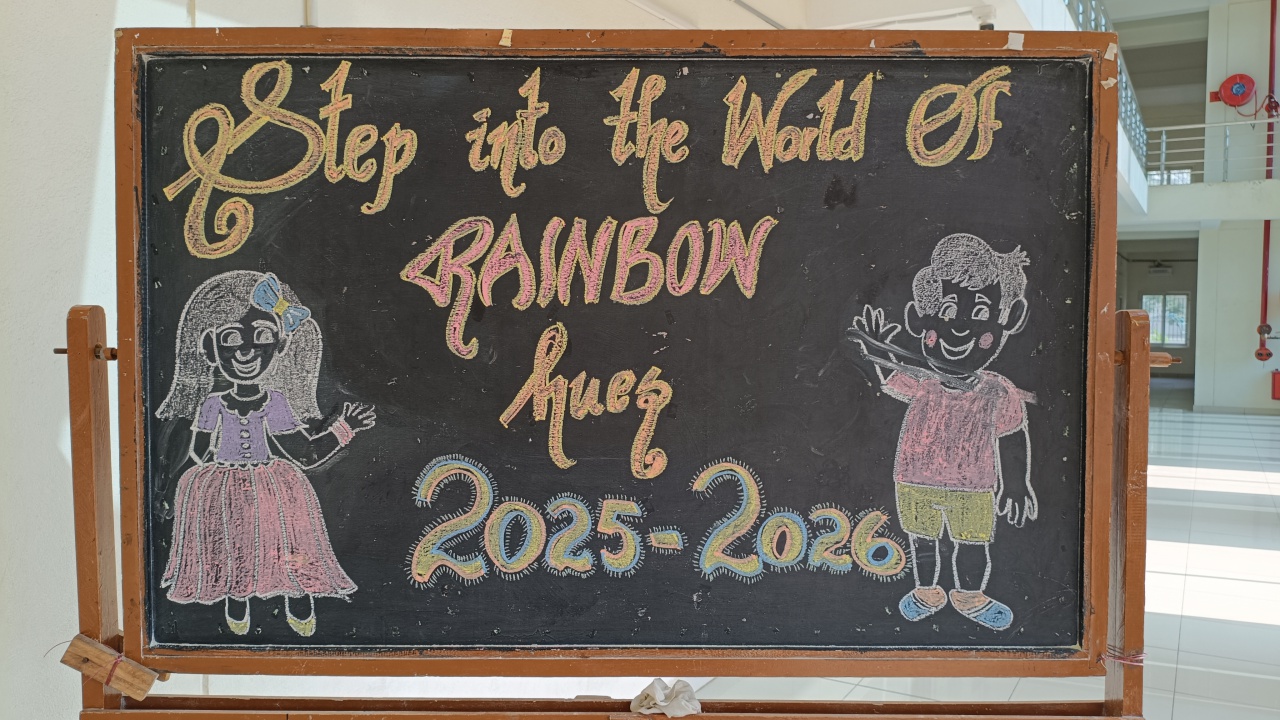 Step into the World Of
RAINBOW
hues
2025-2026